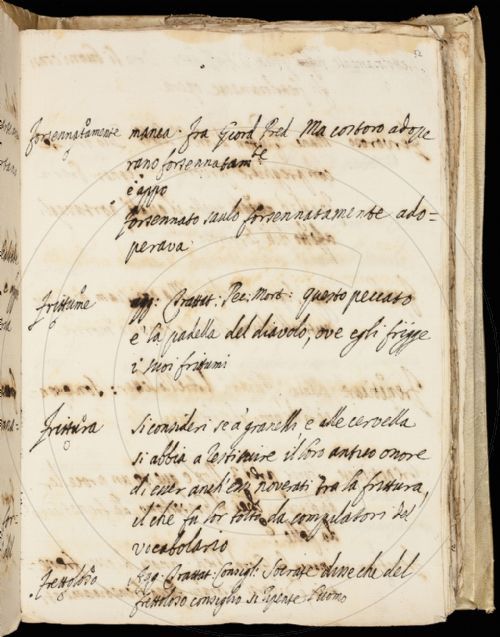 52
forsennatamente manca. fra Giord Pred Ma costoro adope
rano forsennatam.te
e appo
forsennato saulo forsennatamente ado=
perava
frittume agg: Trattat: Pec: Mort: questo peccato
è la padella del diavolo, ove egli frigge
i suoi frittumi
frittura si consideri se a granelli e alle cervella
si abbia a restituire il loro antico onore
di esser anch'essi noverati tra la frittura,
il che fu lor tolto da compilatori del
vocabolario
frettoloso Agg. Trattat: Consigl: Socrate disse che del
frettoloso consiglio si ripente l'uomo